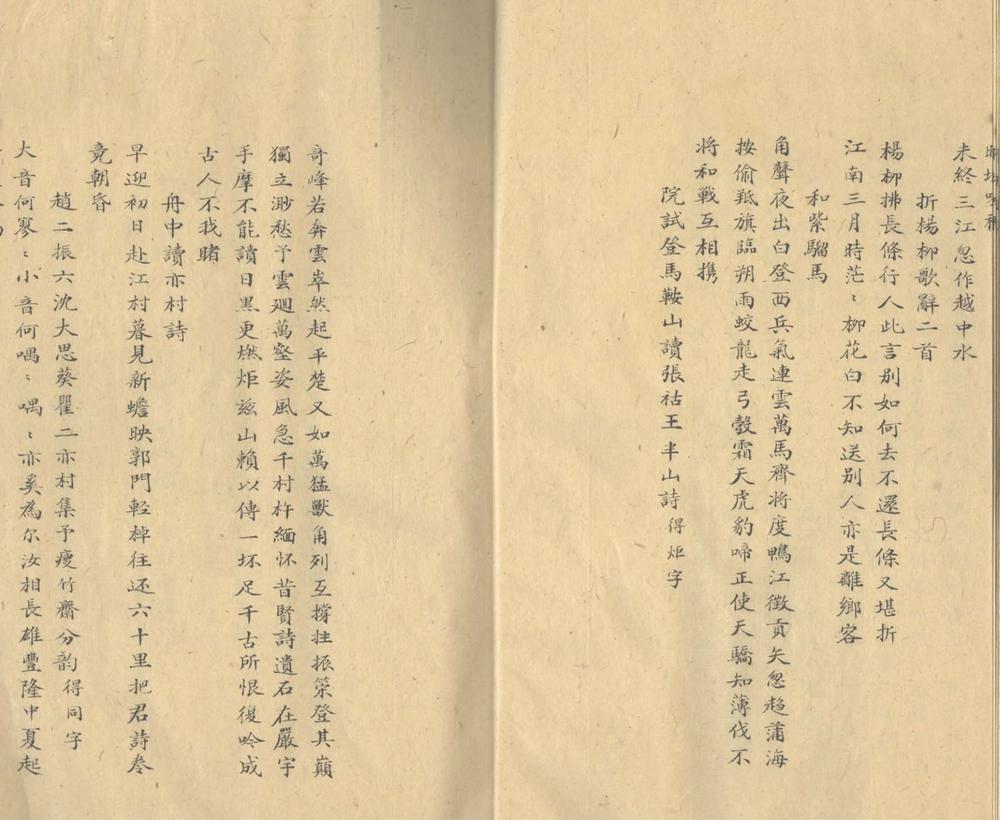 未終三江忽作越中水
折楊柳歌辭二首
楊柳拂長條行人此言别如何去不還長條又堪折
江南三月時茫〻柳花白不知送別人亦是離鄉客
和紫騮馬
角聲夜出白登西兵氣連雲萬馬齊將度鴨江徵貢矢忽趨蒲海
按偷羝旗臨朔雨蛟龍走弓彀霜天虎豹啼正使天驕知薄伐不
将和戰互相携
院試登馬鞍山讀張祜王半山詩得炬字
奇峰若奔雲崒然起平楚又如萬猛獸角列互撐拄振策登其巔
獨立渺愁予雲廻萬壑姿風急千村杵緬怀昔賢詩遺石在嚴宇
手摩不能讀日黒更燃炬兹山賴以傳一坏足千古所恨復吟成
古人不我睹
舟中讀亦村詩
早迎初日赴江村暮見新蟾映郭門輕棹往还六十里把君詩卷
竟朝昏
趙二振六沈大思葵瞿二亦村集予瘦竹齋分韵得同字
大音何寥〻小音何喁〻喁〻亦奚為尔汝相長雄豐隆中夏起